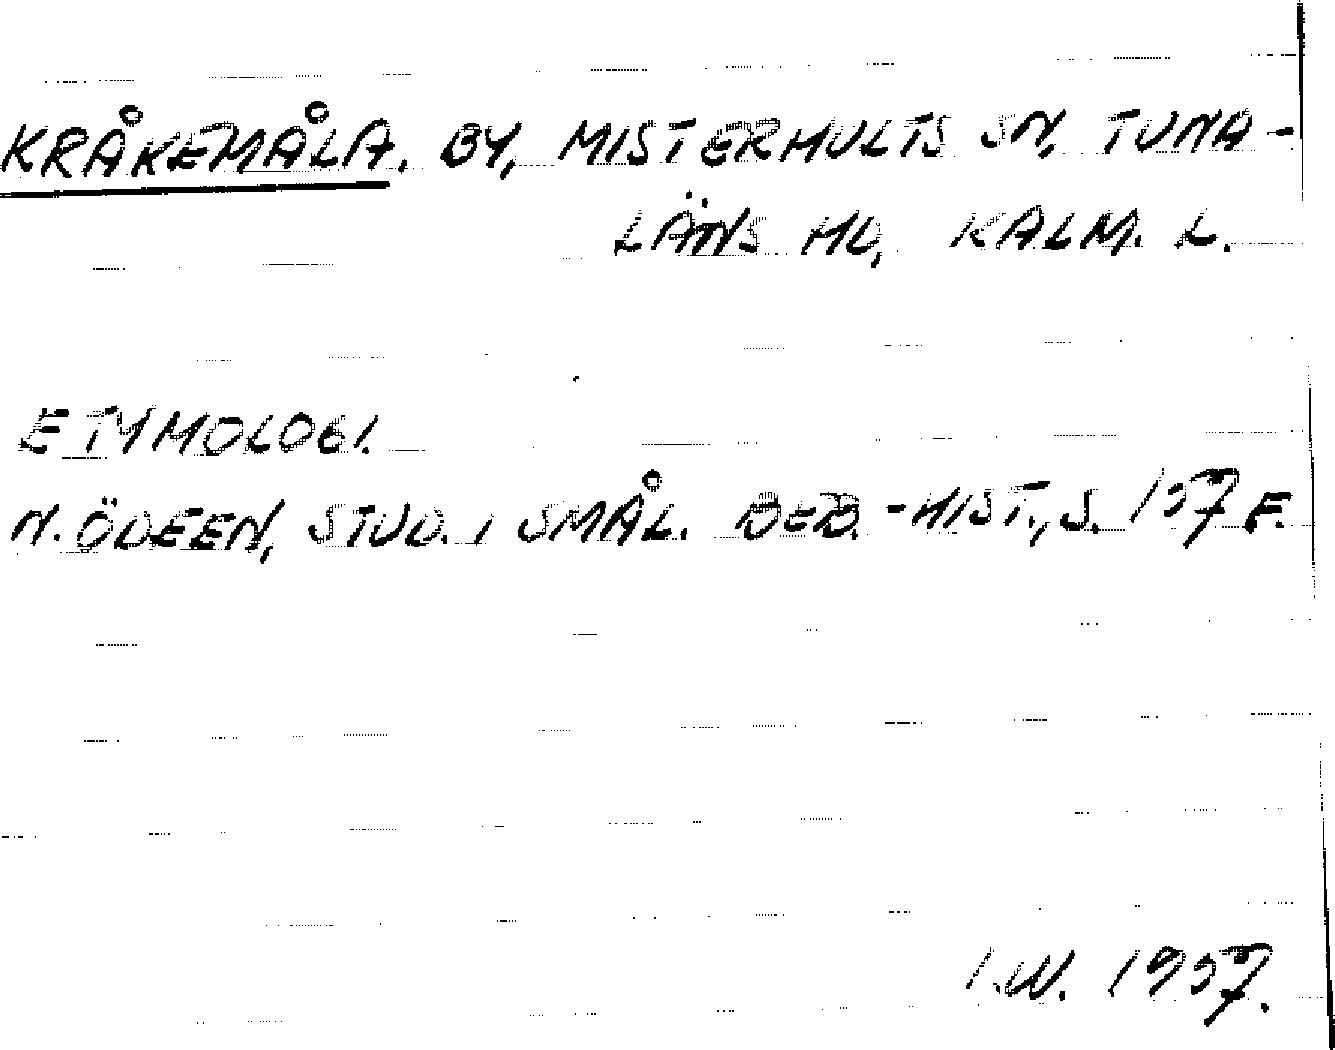 KRÅKEMÅLA. BY, MISTERHULTS SN, TUNA-
LÄNS HD, KALM. L.
ETYMOLOGI.
N. ÖDEEN, STUD. I SMÅL. BEB.-HIST., S. 157 F.
I.W. 1957.